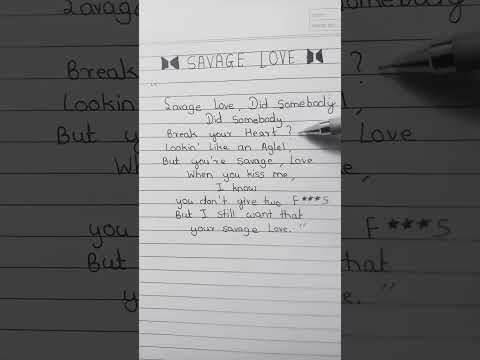 SAVAGE LOVE
"
Savage Love, Did Somebody
Did Somebody
Break your Heart ?
Lookin' Like an Aglel,
But you're savage, Love
When you kiss me,
I know
you don't give two F***s
But I still want that
your savage Love."